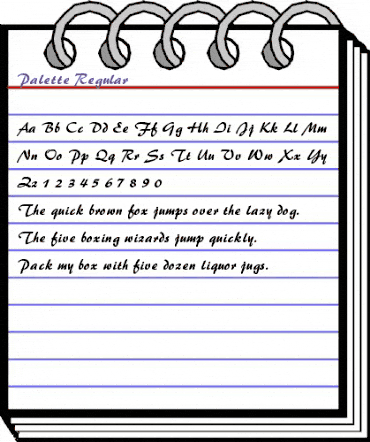 Palette Regular
Aa Bb Cc Dd Ee Ff Gg Hh Ii Jj Kk Ll Mm
Nn Oo Pp Qq Rr Ss Tt Uu Vv Ww Xx Yy
Zz 1 2 3 4 5 6 7 8 9 0
The quick brown fox jumps over the lazy dog.
The five boxing wizards jump quickly.
Pack my box with five dozen liquor jugs.